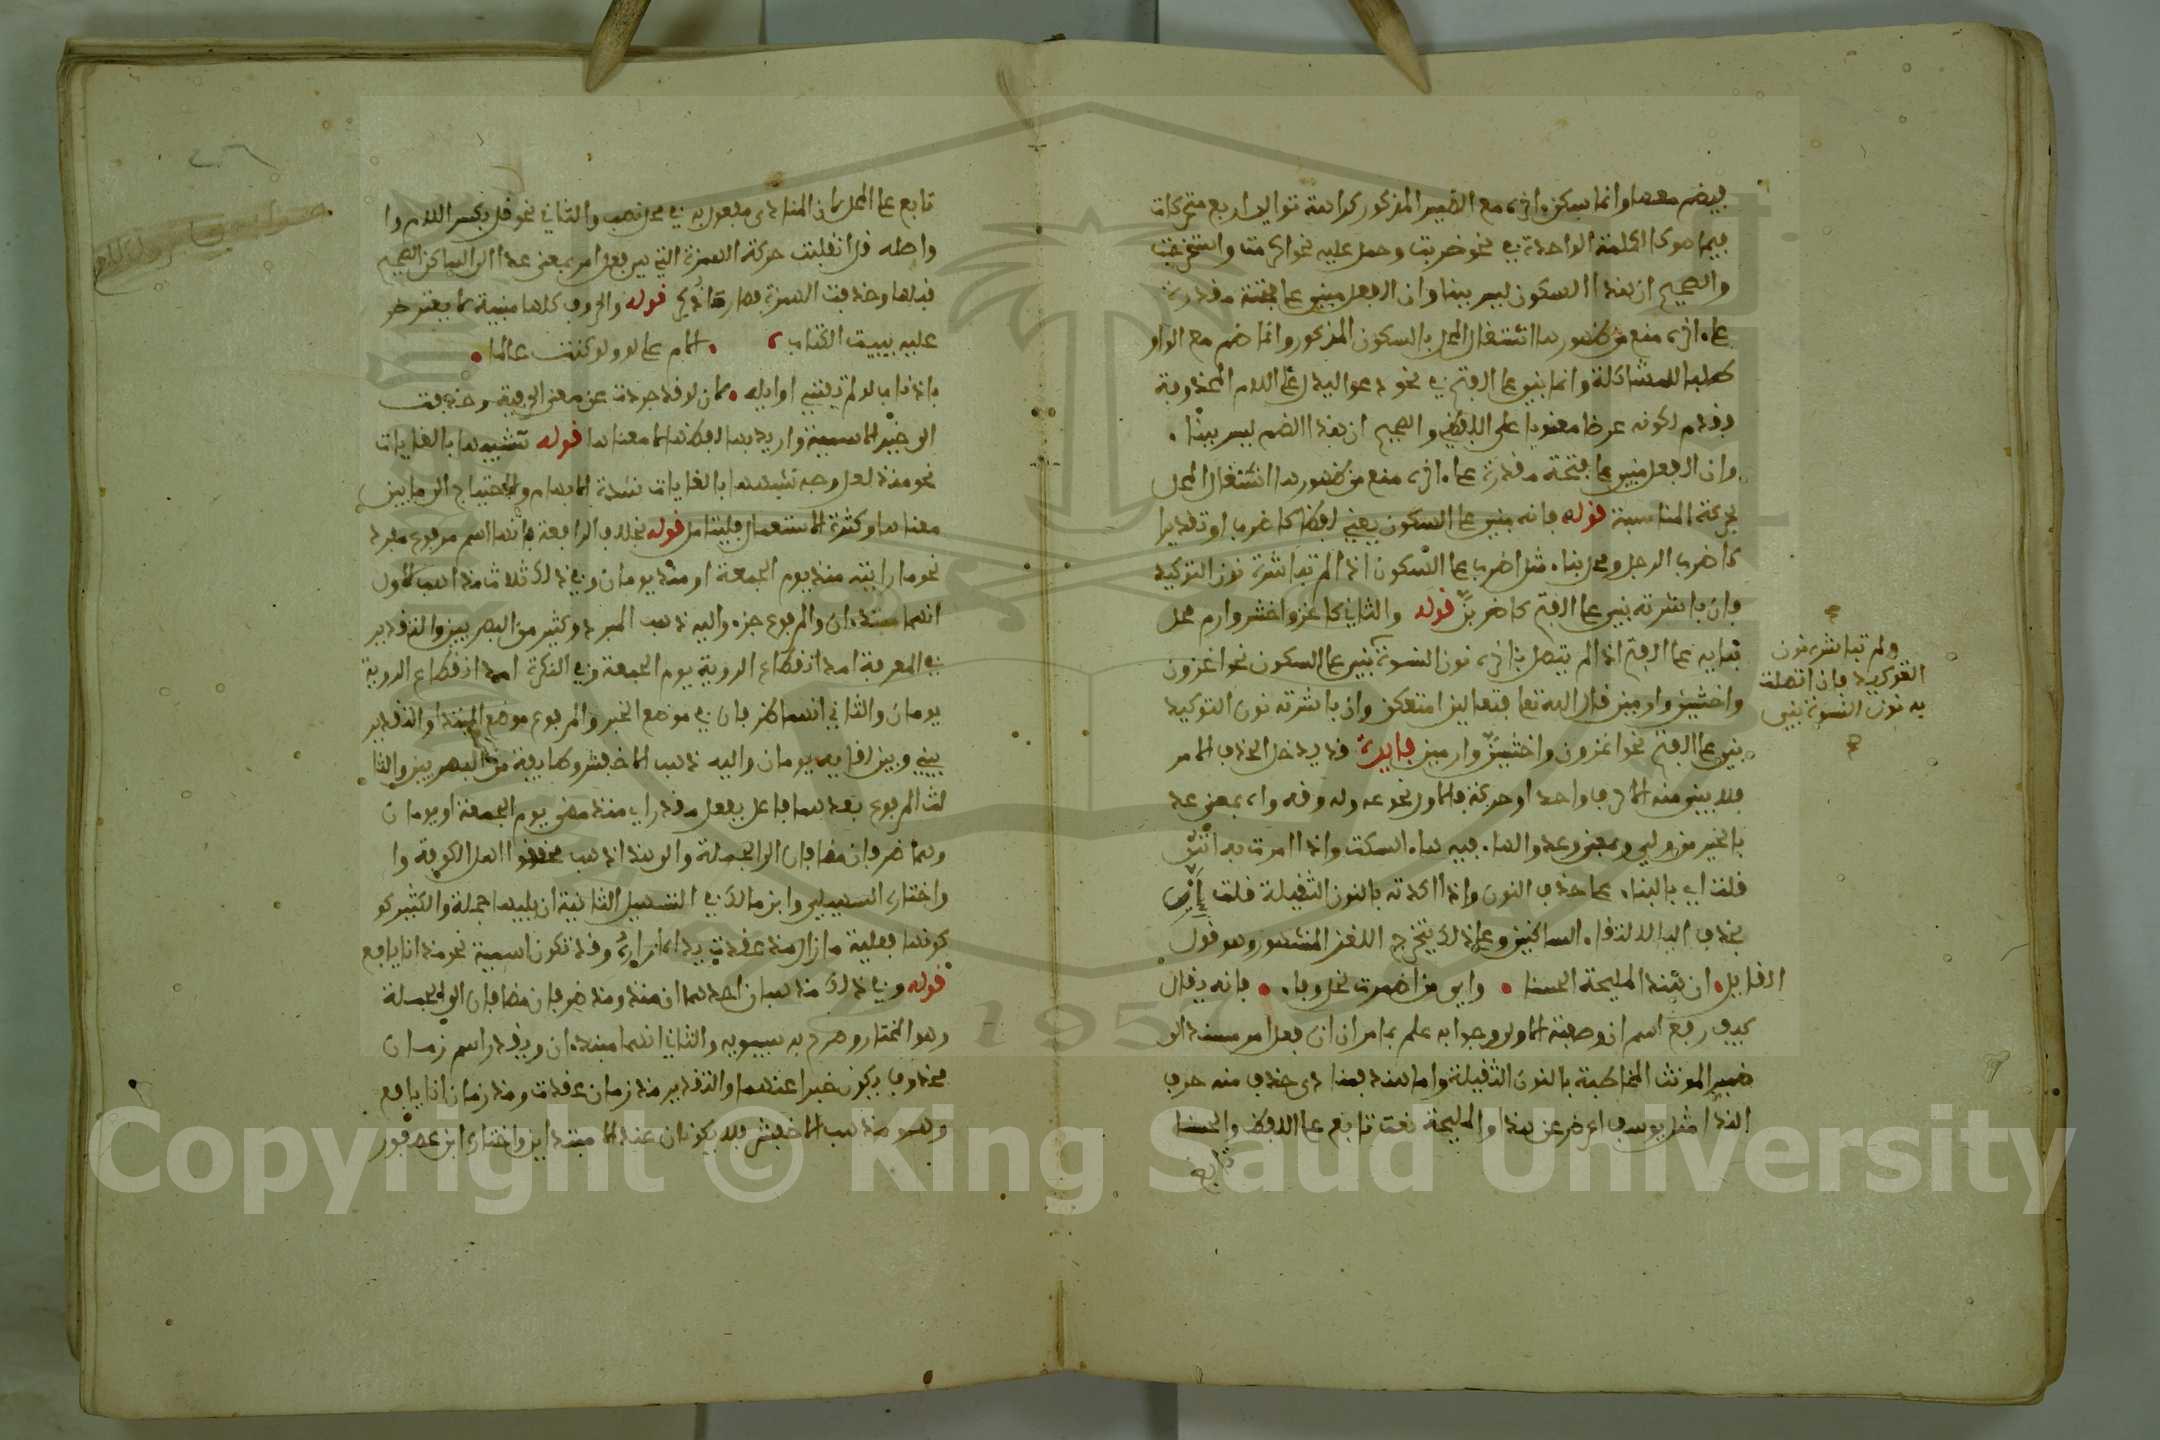 فيضم معها وانما سكن اخره مع الضمير المذكور كراهة توالي اربع متحركات
فيما هو كالكلمة الواحدة في نحو ضربت وحمل عليه نحو اكرمت واستخرجت
والصحيح ان هذا السكون ليس بناء وان الفعل مبني على فتحة مقدرة
على اخره منع من ظهورها اشتغال المحل بالسكون المذكور وانما ضم مع الواو
طلبا للمشاكلة وانما بني على الفتح في نحو دعوا ليدل على اللام المحذوفة
وقدم لكونه غرضا معنويا على اللفظي والصحيح ان هذا الضم ليس بناء
وان الفعل مبني على فتحة مقدرة على اخره منع من ظهورها اشتغال المحل
بحركة المناسبة قوله فانه مبني على السكون يعني لفظا كاضرب او تقديرا
كاضرب الرجل ومحل بناء مثل اضرب على السكون اذا لم تباشره نون التوكيد
فان باشرته بني على الفتح كاضربن قوله والثاني كاغز واخش وارم محل
بنايه على الفتح اذا لم يتصل باخره نون النسوة بني على السكون نحو اغزون
واخشين وارمين قال الله تعالى فتعالين امتعكن وان باشرته نون التوكيد
بني على الفتح نحو اغزون واخشين وارمين فايدة قد يدخل الحذف الامر
فلا يبقى منه الا حرف واحد او حركة فالاول نحو عه وله وقه واه بمعنى عد
بالخير من ولي وبمعنى وعد والهاء فيه هاء السكت واذا امرت به انثى
قلت اي بالبناء على حذف النون واذا اكدته بالنون الثقيلة قلت إنّ
بحذف الياء لالتقاء الساكنين وعلى ذلك يتخرج اللغز المشهور وهو قول
القايل ان هند المليحة الحسناء واي من اضمرت لخل وفاء فانه يقال
كيف رفع اسم ان وصفته الاولى وجوابه علم بما مر ان ان فعل امر مسند الى
ضمير المونث المخاطبة بالنون الثقيلة واما هند فمنادى حذف منه حرف
النداء مثل يوسف اعرض عن هذا والمليحة نعت تابع على اللفظ والحسناء
تابع
ولم تباشره نون
التوكيد فان اتصلت
به نون النسوة بني
تابع على المحل لان المنادى مفعول به في محل نصب والثاني نحو قل بكسر اللام وا
واصله قل ا نقلت حركة الهمزة التي هي فعل امر بمعنى عد الى الساكن الصحيح
قبلها وحذفت الهمزة فصار كما ترى قوله والحروف كلها مبنية لا يعترض
عليه ببيت الكتاب الام على لو ولو كنت عالما
باذناب لو لم تفتني اوايله لان لو قد جردت عن معنى الحرفية وحذفت
الى حيز الاسمية واريد بها لفظها لا معناها قوله تشبيهها بالغايات
نحو منذ لعل وجه تشبيهها بالغايات شدة الابهام والاحتياج الى ما يبين
معناها وكثرة الاستعمال فليتامل قوله بخلاف الرافعة فانها اسم مرفوع مفرد
نحو ما رايته منذ يوم الجمعة او منذ يومان وفي ذلك ثلاث مذاهب الاول
انهما مبتدان والمرفوع خبره واليه ذهب المبرد وكثير من البصريين والتقدير
في المعرفة امد انقطاع الروية يوم الجمعة وفي النكرة امد انقطاع الروية
يومان والثاني انهما ظرفان في موضع الخبر والمرفوع موضع المبتدا والتقدير
بيني وبين لقايه يومان واليه ذهب الاخفش وطايفة من البصريين والثا
لث المرفوع بعدهما فاعل بفعل مقدر اي منذ مضى يوم الجمعة او يومان
وهما ظرفان مضافان الى الجملة والى هذا ذهب اهل الكوفة وا
واختاره السهيلي وابن مالك في التسهيل الثانية ان يليها جملة والكثير كو
كونها فعلية ما زال منذ عقدت يداه ازاره وقد تكون اسمية نحو منذ انا يافع
قوله وفي ذلك مذهبان احدهما ان منذ ومذ ظرفان مضافان الى الجملة
وهو المختار وصرح به سيبويه والثاني انهما مبتدان ويقدر اسم زمان
محذوف يكون خبرا عنهما والتقدير منذ زمان عقدت ومذ زمان انا يافع
وهو مذهب الاخفش فلا يكونان عنده الا مبتداين واختاره ابن عصفور
Copyright © King Saud University
1957